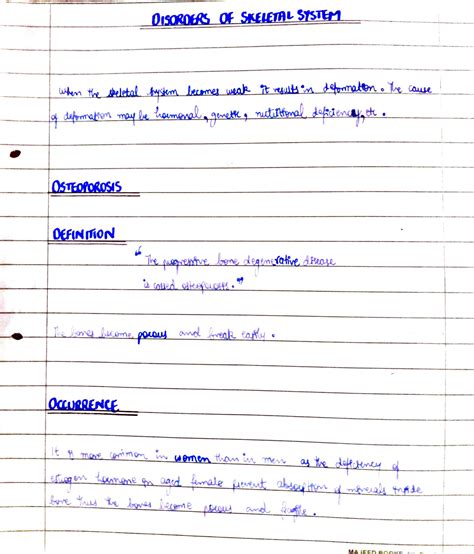 DISORDERS OF SKELETAL SYSTEM
when the skeletal system becomes weak it results in deformation. The cause
of deformation may be hormonal, genetic, nutritional deficiency, etc.
OSTEOPOROSIS
DEFINITION
"The progressive bone degenerative disease
is called osteoporosis."
The bones become porous and break easily.
OCCURRENCE
It is more common in women than in men as the deficiency of
estrogen hormone in aged female prevent absorption of minerals inside
bone thus the bones become porous and fragile.
MAJEED BOOKS